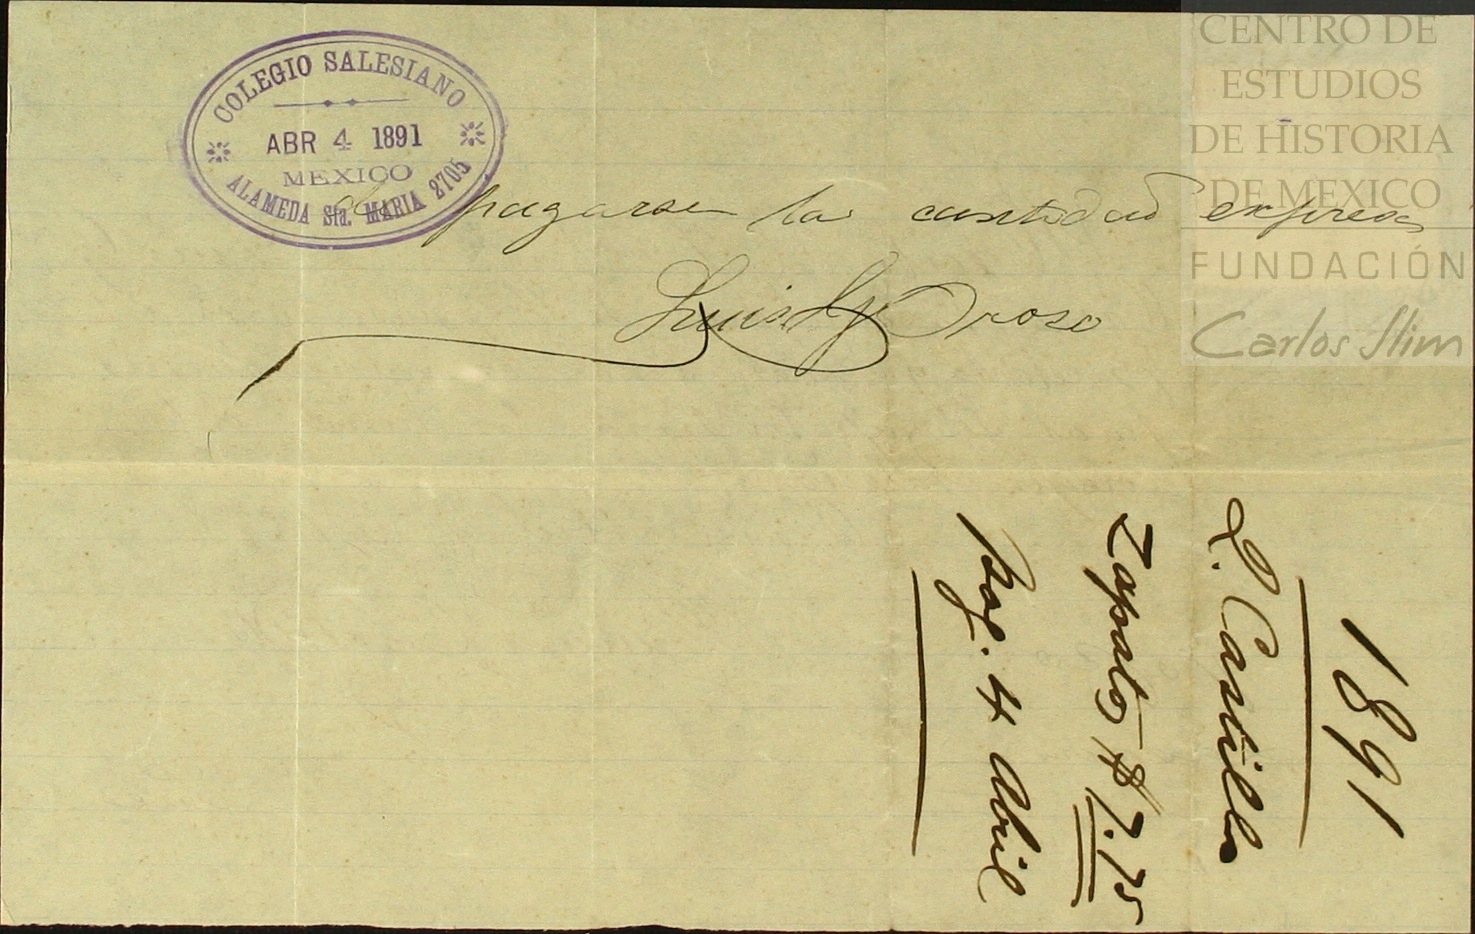 COLEGIO SALESIANO
ABR 4 1891
MEXICO
ALAMEDA Sta. MARIA 2705
pagarse la cantidad expresa
Luis G. Oroso
1891
L. Castillo
Zapatos $7.75
Pag. 4 Abril
CENTRO DE
ESTUDIOS
DE HISTORIA
DE MEXICO
FUNDACIÓN
Carlos Slim